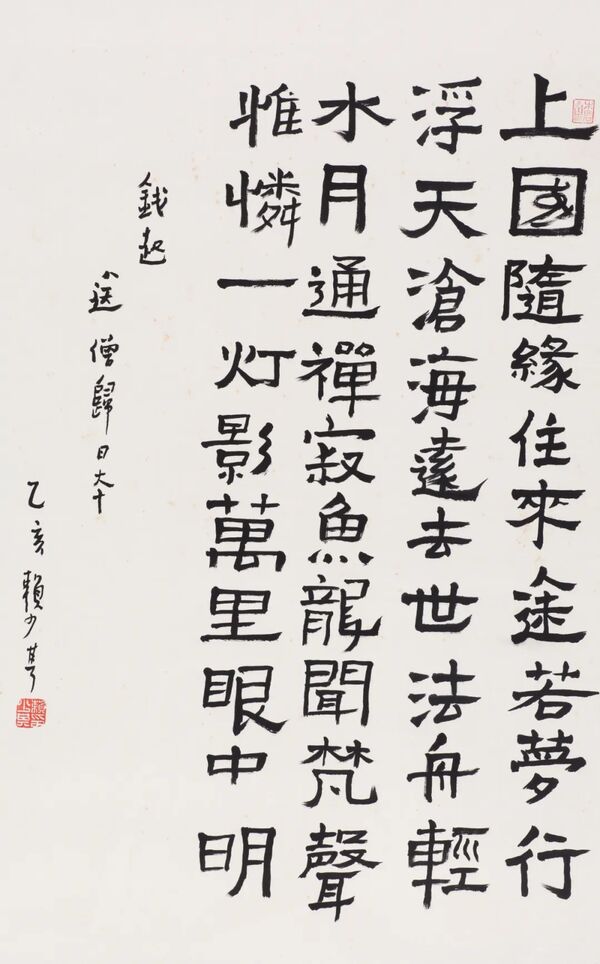 上國隨緣住來途若夢行
浮天滄海遠去世法舟輕
水月通禪寂魚龍聞梵聲
惟憐一灯影萬里眼中明
錢起
送僧歸日夲
乙亥賴少其